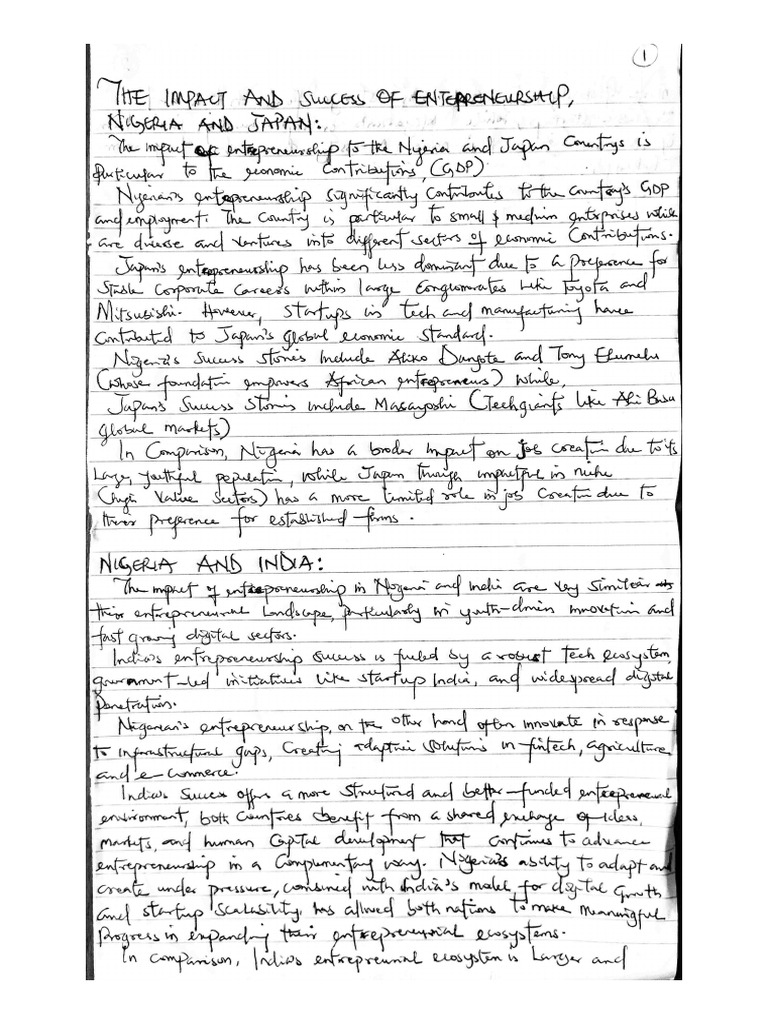 1
THE IMPACT AND SUCCESS OF ENTERPRENEURSHIP,
NIGERIA AND JAPAN:
The impact of entrepreneurship to the Nigeria and Japan Countrys is
particular to the economic Contributions, (GDP)
Nigerian's entrepreneurship significantly Contributes to the Country's GDP
and employment. The Country is particular to small & medium enterprises while
are diverse and ventures into different sectors of economic Contributions.
Japan's entrepreneurship has been less dominant due to a preference for
Stable Corporate Careers within large Conglomerates like Toyota and
Mitsubishi. However, Startups in tech and manufacturing have
Contributed to Japan's global economic standard.
Nigeria's Success stories include Aliko Dangote and Tony Elumelu
(whose foundation empowers African entrepreneurs) while,
Japan's Success Stories include Masayoshi (Tech giants like
global markets)
In Comparison, Nigeria has a broder impact on job creation due to its
Large, youthful population, while Japan though impactful in niche
(high Value Sectors) has a more limited role in job Creation due to
their preference for established firms.
NIGERIA AND INDIA:
The impact of entrepreneurship in Nigeria and India are very similar
their entrepreneurial Landscape, particularly in youth-driven innovation and
fast growing digital sectors.
India's entrepreneurship success is fueled by a robust tech ecosystem,
government-led initiatives like startup India, and widespread digital
penetration.
Nigerian's entrepreneurship, on the other hand often innovate in response
to infrastructural gaps, Creating adaptive solutions in fintech, agriculture
and e-commerce.
India's Success offers a more structured and better-funded entrepreneurial
environment, both Countries benefit from a shared exchange of ideas,
markets, and human Capital development that continues to advance
entrepreneurship in a Complementary way. Nigeria's ability to adapt and
create under pressure, combined with India's model for digital Growth
and startup Scalability, has allowed both nations to make Meaningful
Progress in expanding their entrepreneurial ecosystems.
In comparison, India's entrepreneurial ecosystem is Larger and